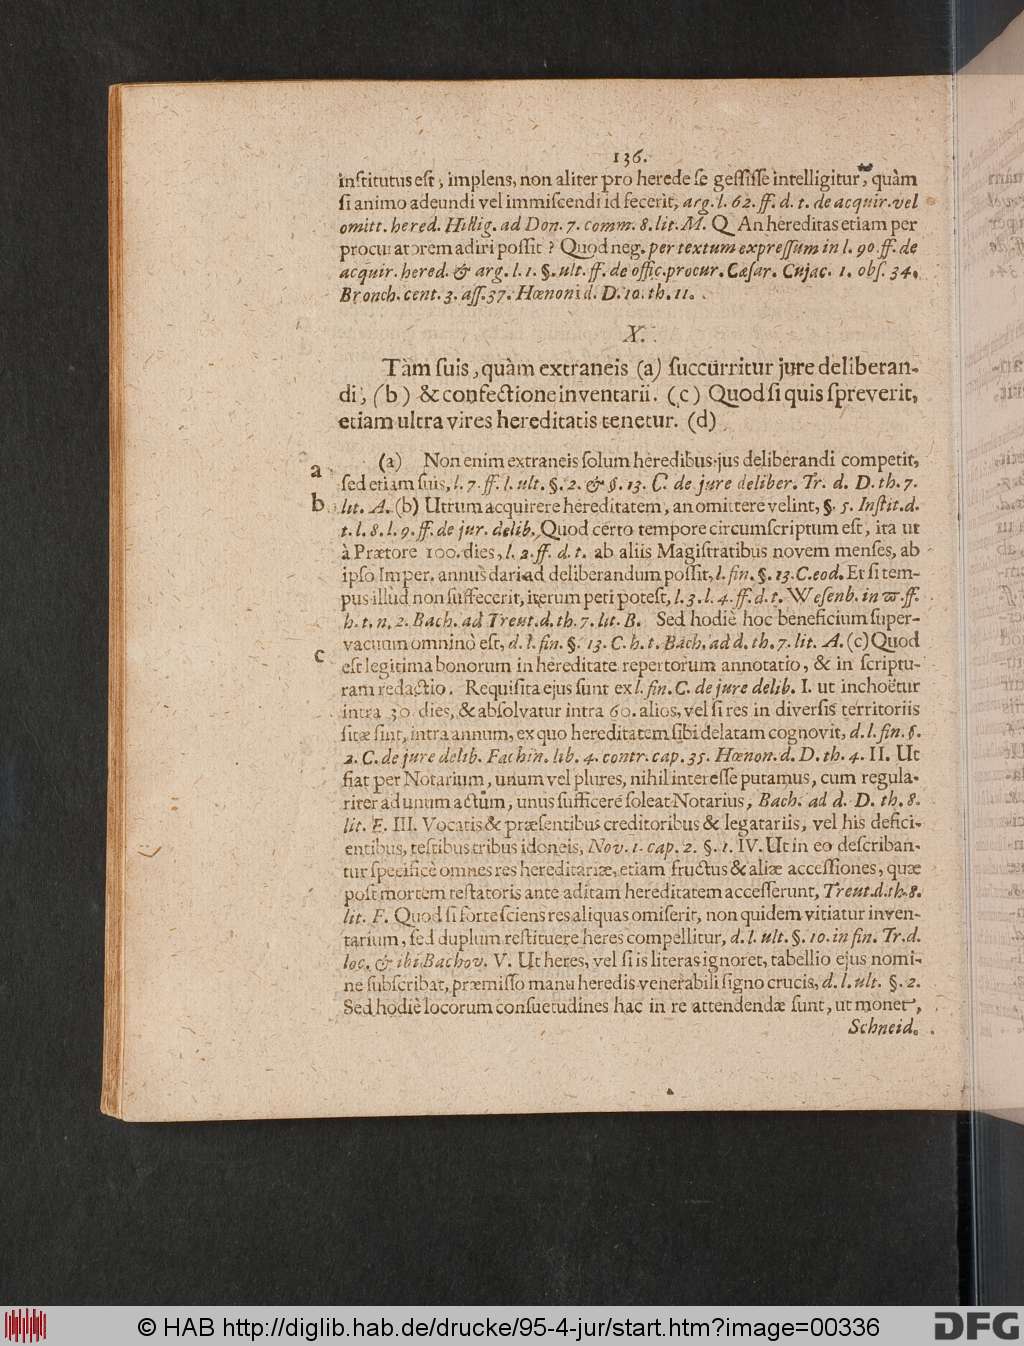 136.
institutus est, implens, non aliter pro herede se gessisse intelligitur, quàm
si animo adeundi vel immiscendi id fecerit, arg. l. 62. ff. d. t. de acquir. vel
omitt. hered. Hillig. ad Don. 7. comm. 8. lit. M. Q An hereditas etiam per
procuratorem adiri possit? Quod neg. per textum expressum in l. 90. ff. de
acquir. hered. & arg. l. 1. §. ult. ff. de offic. procur. Cæsar. Cujac. 1. obs. 34.
Bronch. cent. 3. ass. 37. Hœnonid. D. 10. th. 11.
X.
Tàm suis, quàm extraneis (a) succurritur jure deliberan-
di, (b) & confectione inventarii. (c) Quod si quis spreverit,
etiam ultra vires hereditatis tenetur. (d)
a (a) Non enim extraneis solum heredibus jus deliberandi competit,
sed etiam suis, l. 7. ff. l. ult. §. 2. & §. 13. C. de jure deliber. Tr. d. D. th. 7.
b lit. A. (b) Utrum acquirere hereditatem, an omittere velint, §. 5. Instit. d.
t. l. 8. l. 9. ff. de jur. delib. Quod certo tempore circumscriptum est, ita ut
à Prætore 100. dies, l. 2. ff. d. t. ab aliis Magistratibus novem menses, ab
ipso Imper. annus dari ad deliberandum possit, l. fin. §. 13. C. eod. Et si tem-
pus illud non suffecerit, iterum peti potest, l. 3. l. 4. ff. d. t. Wesenb. in ϖ. ff.
h. t. n. 2. Bach. ad Treut. d. th. 7. lit. B. Sed hodiè hoc beneficium super-
vacuum omninò est, d. l. fin. §. 13. C. h. t. Bach. ad d. th. 7. lit. A. (c) Quod
c est legitima bonorum in hereditate repertorum annotatio, & in scriptu-
ram redactio. Requisita ejus sunt ex l. fin. C. de jure delib. I. ut inchoëtur
intra 30. dies, & absolvatur intra 60. alios, vel si res in diversis territoriis
sitæ sint, intra annum, ex quo hereditatem sibi delatam cognovit, d. l. fin. §.
2. C. de jure delib. Fachin. lib. 4. contr. cap. 35. Hœnon. d. D. th. 4. II. Ut
fiat per Notarium, unum vel plures, nihil interesse putamus, cum regula-
riter ad unum actum, unus sufficere soleat Notarius, Bach. ad d. D. th. 8.
lit. E. III. Vocatis & præsentibus creditoribus & legatariis, vel his defici-
entibus, testibus tribus idoneis, Nov. 1. cap. 2. §. 1. IV. Ut in eo describan-
tur specificè omnes res hereditariæ, etiam fructus & aliæ accessiones, quæ
post mortem testatoris ante aditam hereditatem accesserunt, Treut. d. th. 8.
lit. F. Quod si forte sciens res aliquas omiserit, non quidem vitiatur inven-
tarium, sed duplum restituere heres compellitur, d. l. ult. §. 10. in fin. Tr. d.
loc. & ibi Bachov. V. Ut heres, vel si is literas ignoret, tabellio ejus nomi-
ne subscribat, præmisso manu heredis venerabili signo crucis, d. l. ult. §. 2.
Sed hodiè locorum consuetudines hac in re attendendæ sunt, ut monet,
Schneid.
© HAB http://diglib.hab.de/drucke/95-4-jur/start.htm?image=00336
DFG